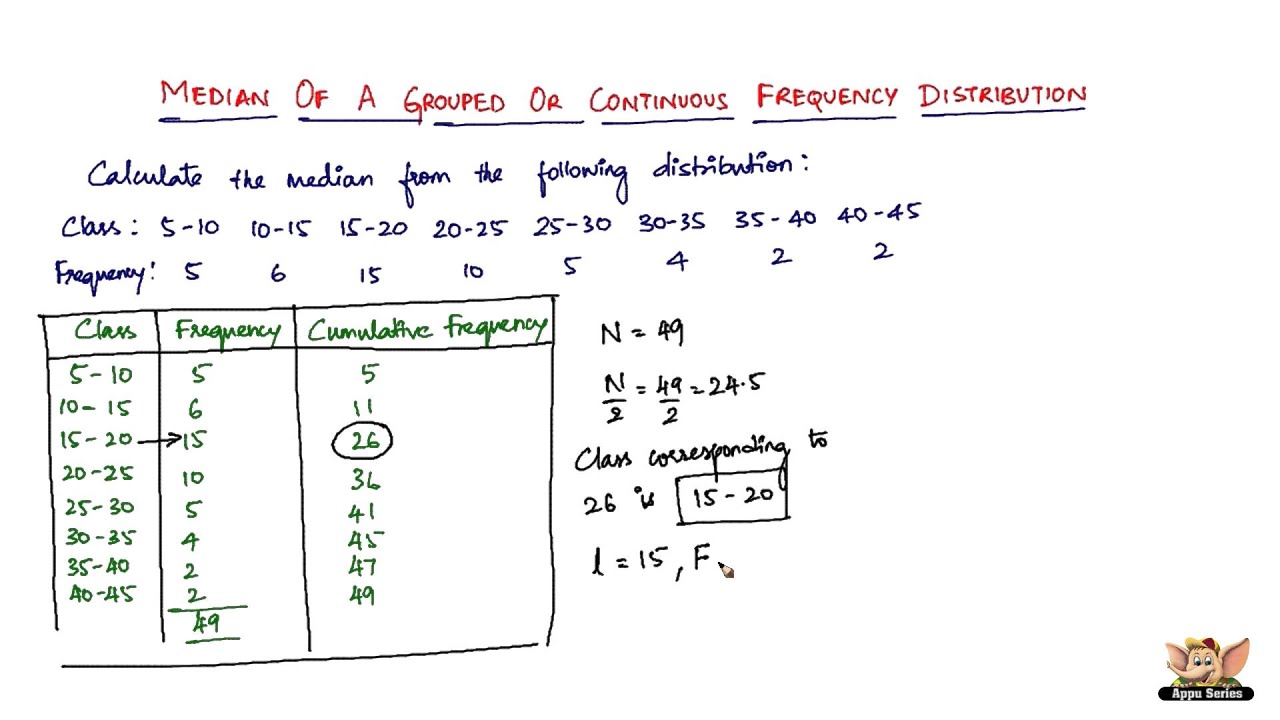 MEDIAN OF A GROUPED OR CONTINUOUS FREQUENCY DISTRIBUTION
Calculate the median from the following distribution:
Class: 5-10 10-15 15-20 20-25 25-30 30-35 35-40 40-45
Frequency: 5 6 15 10 5 4 2 2
Class Frequency Cumulative frequency
5-10 5 5
10-15 6 11
15-20 → 15 26
20-25 10 36
25-30 5 41
30-35 4 45
35-40 2 47
40-45 2 49
49
N = 49
N/2 = 49/2 = 24.5
Class corresponding to
26 is 15-20
l = 15, F
Appu Series